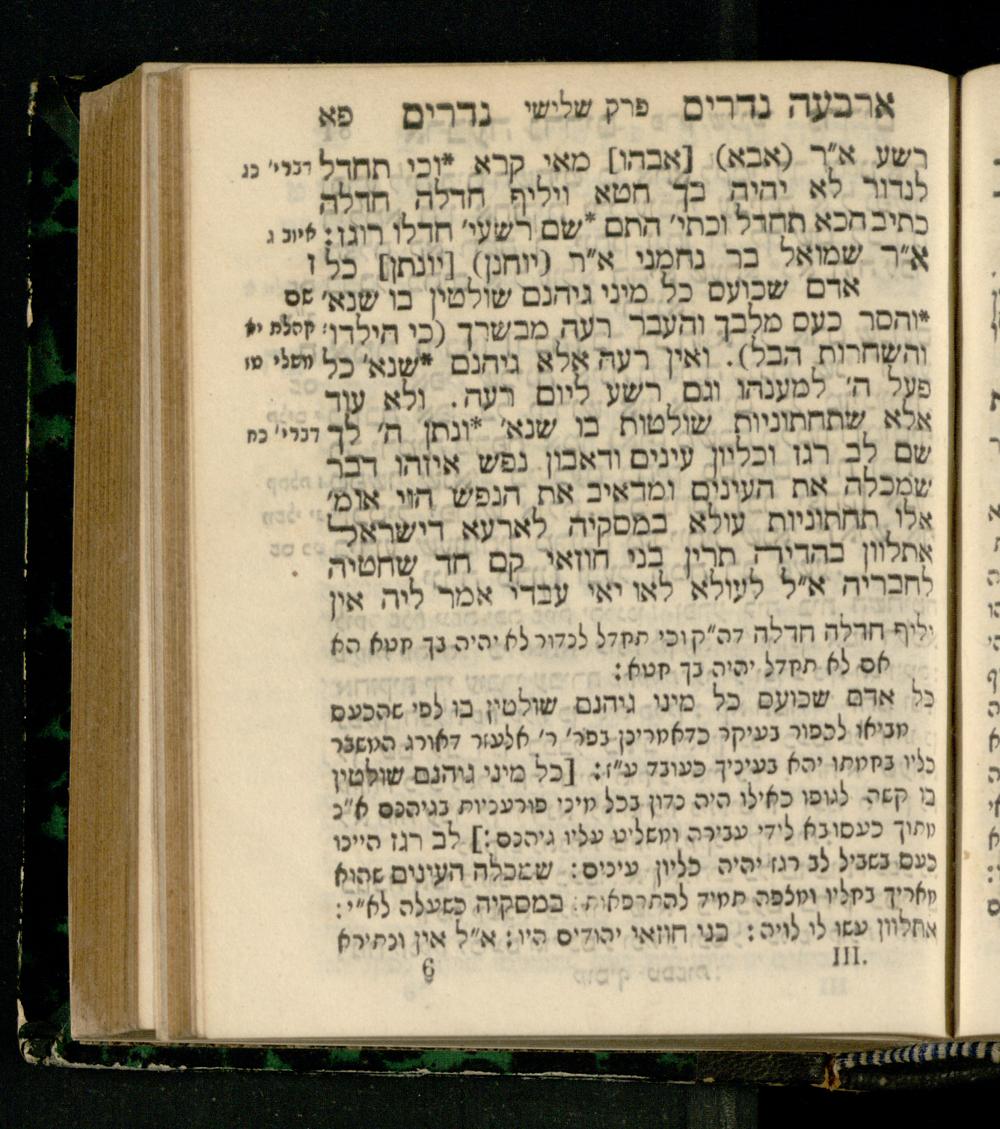 ארבעה נדרים פרק שלישי נדרים פא
רשע א"ר (אבא) [אבהו] מאי קרא *וכי תחדל דברי' כג
לנדור לא יהיה בך חטא ויליף חדלה חדלה
כתיב הכא תחדל וכתי' התם *שם רשעי' חדלו רוגז: איוב ג
א"ר שמואל בר נחמני א"ר (יוחנן) [יונתן] כל ז
אדם שכועס כל מיני גיהנם שולטין בו שנא' שם
*והסר כעס מלבך והעבר רעה מבשרך (כי הילדו' קהלת יא
והשחרות הבל). ואין רעה אלא גיהנם *שנא' כל משלי טז
פעל ה' למענהו וגם רשע ליום רעה. ולא עוד
אלא שתחתוניות שולטות בו שנא' *ונתן ה' לך דברי' כח
שם לב רגז וכליון עינים ודאבון נפש איזהו דבר
שמכלה את העינים ומדאיב את הנפש הוי אומ'
אלו תחתוניות עולא במסקיה לארעא דישראל
אתלוון בהדיה תרין בני חוזאי קם חד שחטיה
לחבריה א"ל לעולא לאו יאי עבדי אמר ליה אין
יליף חדלה חדלה דה"ק וכי תחדל לנדור לא יהיה בך חטא הא
אם לא תחדל יהיה בך חטא:
כל אדם שכועס כל מיני גיהנם שולטין בו לפי שהכעס
מביאו לכפור בעיקר כדאמרינן בפר' ר' אלעזר דאורג המשבר
כליו בחמתו יהא בעיניך כעובד ע"ז: [כל מיני גיהנם שולטין
בו קשה לגופו כאילו היה נדון בכל מיני פורעניות בגיהנם א"נ
מתוך כעסו בא לידי עבירה ומשליט עליו גיהנם:] לב רגז היינו
כעס בשביל לב רגז יהיה כליון עינים: שמכלה העינים שהוא
מאריך בחליו ומצפה תמיד להתרפאות: במסקיה כשעלה לא"י:
אתלוון עשו לו לויה: בני חוזאי יהודים היו: א"ל אין ונתירא
III. 6